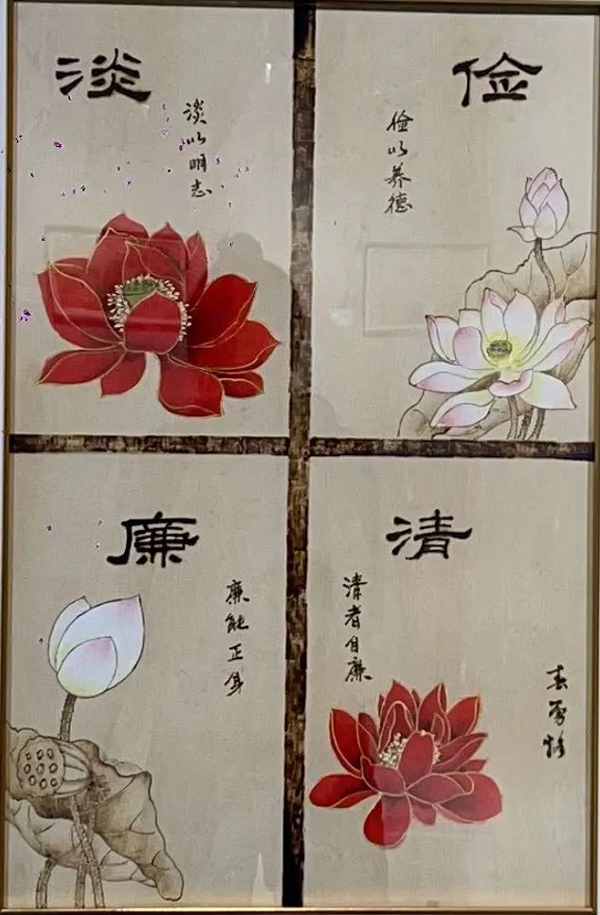 淡
淡以明志
俭
俭以养德
廉
廉能正身
清
清者自廉